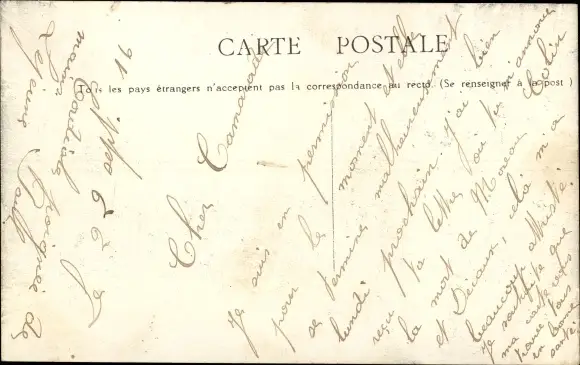 CARTE POSTALE
Tous les pays étrangers n'acceptent pas la correspondance au recto. (Se renseigner à la poste)
Cher Camarade
Je suis en permission
pour le moment et elle
se termine malheureusement
lundi prochain. j'ai bien
reçu ta lettre où tu m'annonce
la mort de Moreau Colin
et cela m'a
beaucoup attristé.
Je souhaite que
ma carte vous
trouve tous
en bonne
santé.
Cordiale
poignée de
main